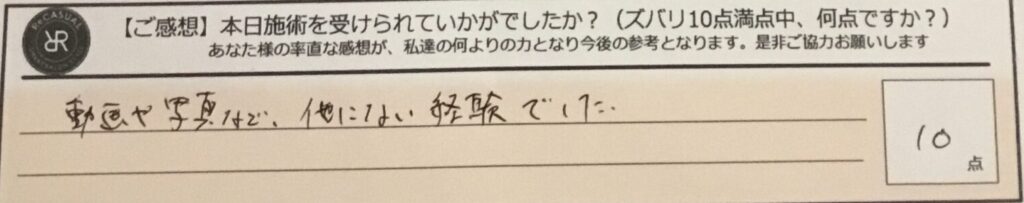 【ご感想】本日施術を受けられていかがでしたか？（ズバリ10点満点中、何点ですか？）
あなた様の率直な感想が、私達の何よりの力となり今後の参考となります。是非ご協力お願いします
ReCASUAL
動画や写真など、他にない経験でした。
10
点